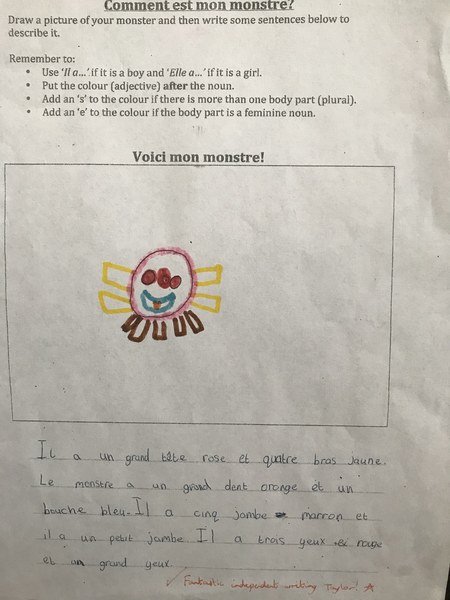 Comment est mon monstre?
Draw a picture of your monster and then write some sentences below to
describe it.
Remember to:
• Use 'Il a...' if it is a boy and 'Elle a...' if it is a girl.
• Put the colour (adjective) after the noun.
• Add an 's' to the colour if there is more than one body part (plural).
• Add an 'e' to the colour if the body part is a feminine noun.
Voici mon monstre!
Il a un grand tête rose et quatre bras jaune.
Le monstre a un grand dent orange et un
bouche bleu. Il a cinq jambe marron et
il a un petit jambe. Il a trois yeux rouge
et un grand yeux.
Fantastic independent writing Taylor!